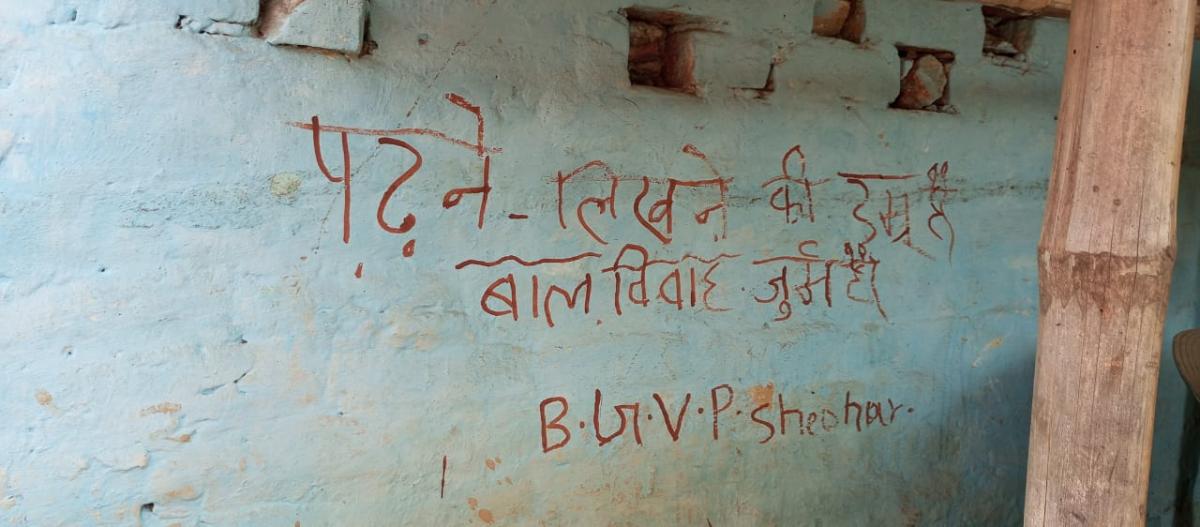 पढ़ने - लिखने की उम्र है
बाल विवाह जुर्म है
B.G.V.P. Sheohar.